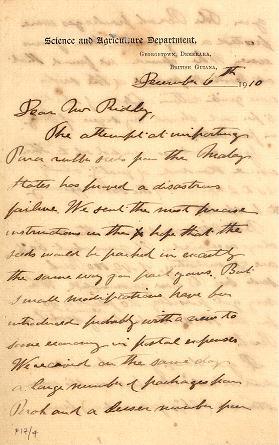 Science and Agriculture Department,
Georgetown, Demerara,
British Guiana,
December 6th 1910
Dear Mr Ridley,
The attempt at importing
Para rubber seeds from the Malay
States has proved a disastrous
failure. We sent the most precise
instructions in the hope that the
seeds would be packed in exactly
the same way you pack yours. But
small modifications have been
introduced probably with a view to
some economy in postal expenses
We received on the same day
a large number of packages from
Perak and a lesser number from